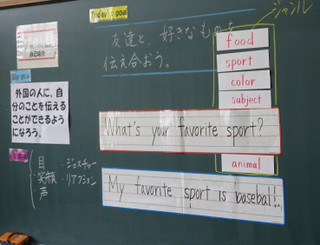 Today's goal
ジャンル
友達と、好きなものを
伝え合おう。
food
sport
color
subject
外国の人に、自
分のことを伝える
ことができるよう
になろう。
What's your favorite sport?
animal
目
・ジェスチャー
笑顔
・リアクション
声
My favorite sport is baseball.